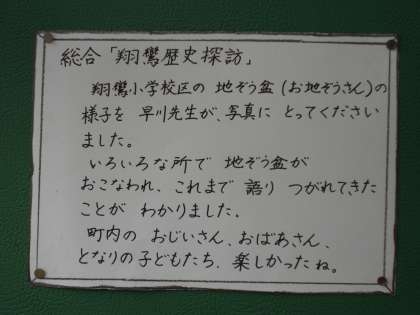 総合「翔鸞歴史探訪」
翔鸞小学校区の 地ぞう盆(お地ぞうさん)の
様子を 早川先生が、写真に とってください
ました。
いろいろな所で 地ぞう盆が
おこなわれ、これまで 語り つがれてきた
ことが わかりました。
町内の おじいさん、おばあさん、
となりの子どもたち、楽しかったね。